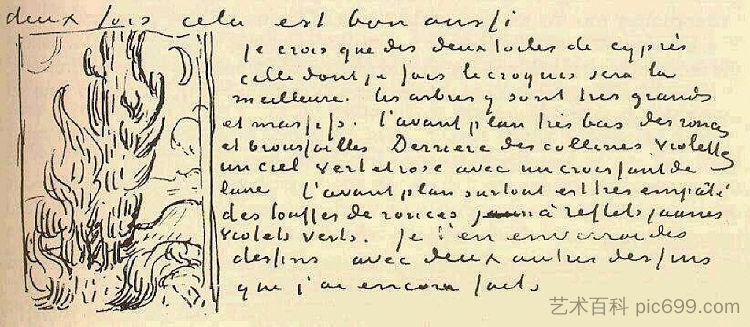 deux fois cela est bon aussi
Je crois que des deux toiles de cyprès
celle dont je fais le croquis sera la
meilleure. les arbres y sont très grands
et massifs. l'avant plan très bas des ronces
et broussailles Derrière des collines violettes
un ciel vert et rose avec un croissant de
lune L'avant plan surtout est très empâté
des touffes de ronces à reflets jaunes
violets verts. Je t'en enverrai des
dessins avec deux autres dessins
que j'ai encore faits
艺术百科 pic699.com